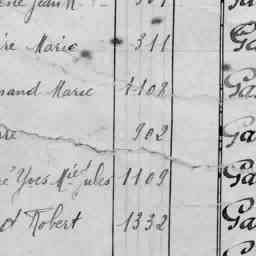 Jean M
re Marie 311 Ga
nand Marie 1108 Ga
re 902 Ga
é Yves Mie Jules 1109 Ga
ot Robert 1332 Ga